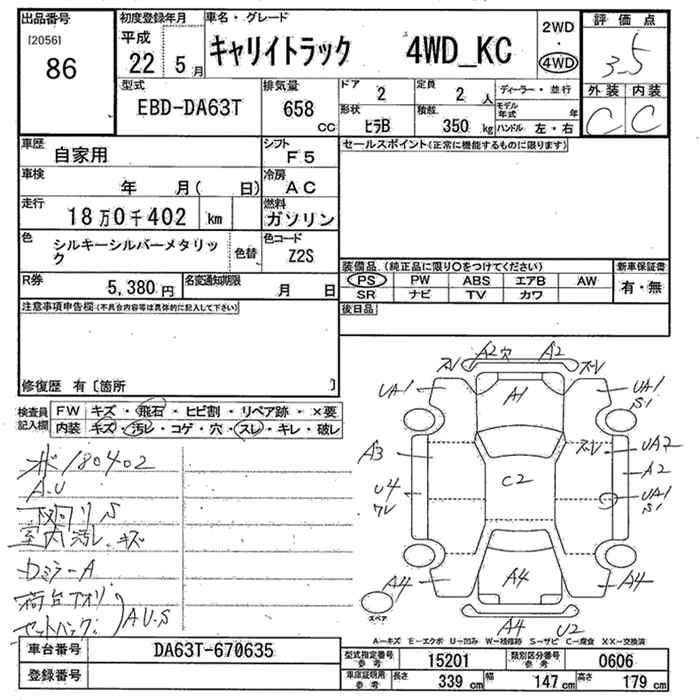 出品番号 初度登録年月 車名・グレード 2WD 評価点
[2056] 平成
86 22 5月 キャリイトラック 4WD_KC 4WD 3.5
型式 排気量 ドア 定員 ディーラー・並行 外装 内装
EBD-DA63T 658 cc 2 2人 モデル年式 年
形状 積載
ヒラB 350 kg ハンドル 左・右 C C
車歴 自家用 シフト F5 セールスポイント(正常に機能するものに限ります)
車検 年 月( 日) 冷房 AC
走行 18万0千402 km 燃料 ガソリン
色 シルキーシルバーメタリック 色替 色コード Z2S
装備品 (純正品に限り○をつけてください) 新車保証書
R券 5,380円 名変通知期限 月 日 PS PW ABS エアB AW 有・無
SR ナビ TV カワ
注意事項申告欄(不具合内容等は具体的に記入して下さい) 後日品
修復歴 有〔箇所 〕
検査員記入欄 FW キズ・飛石・ヒビ割・リペア跡・×要
内装 キズ・汚レ・コゲ・穴・スレ・キレ・破レ
A2穴 A2
UA1 A1 UA1
S1
A3 UA2
A2
C2
U4 UA1
S1
A4 A4 A4
A4 U2
スペア
180402
A.U
室内汚レ.キズ
Dミラー A
荷台アオリ
セットバック AU.S
A-キズ E-エクボ U-凹み W-補修跡 S-サビ C-腐食 XX-交換済
車台番号 DA63T-670635 型式指定番号 参考 15201 類別区分番号 参考 0606
登録番号 車庫証明用 参考 長さ 339 cm 幅 147 cm 高さ 179 cm